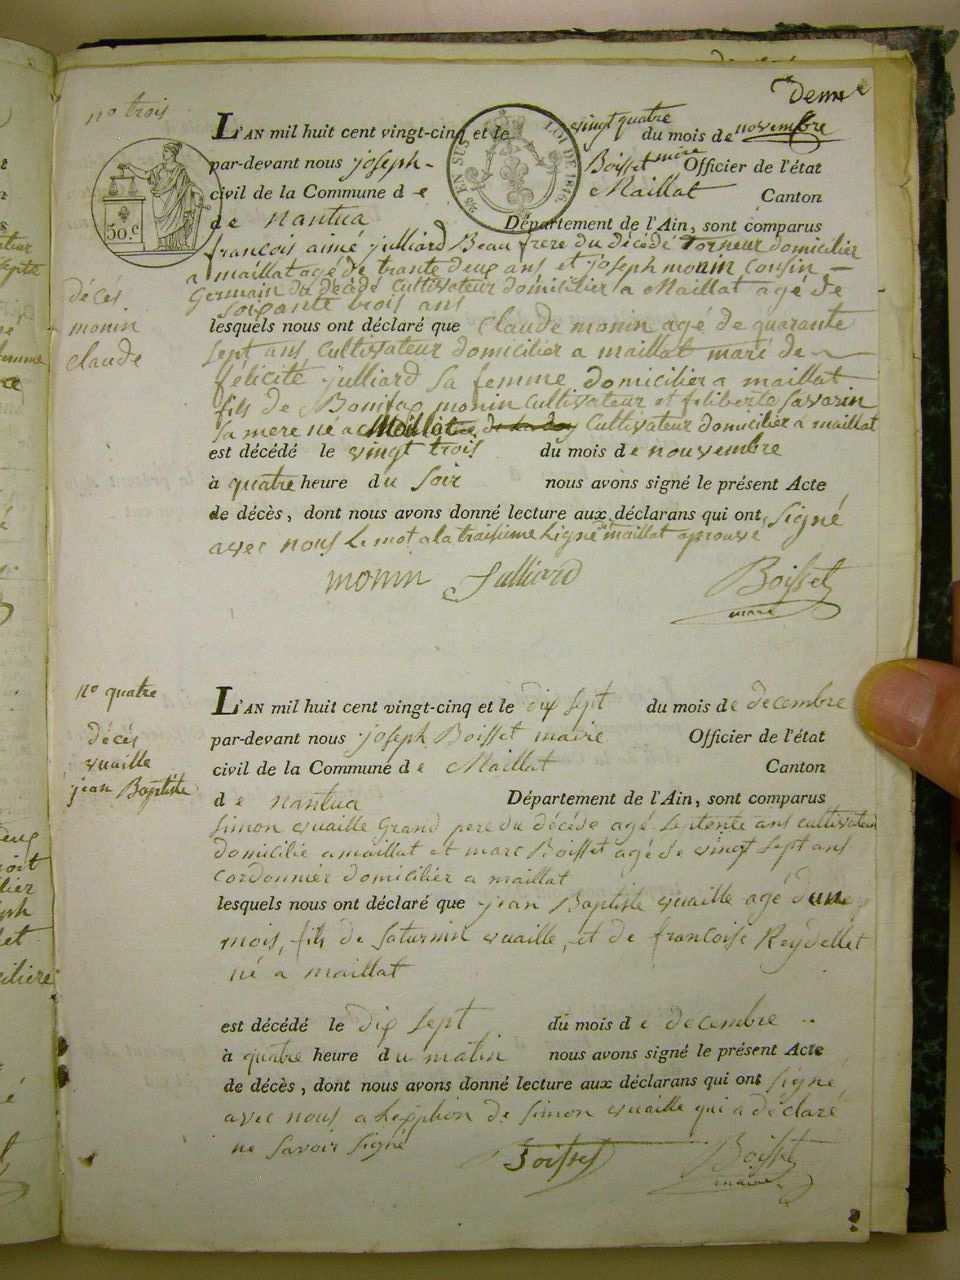 deux
no trois
L'AN mil huit cent vingt-cinq et le vingt quatre du mois de novembre
par-devant nous joseph Boisset maire Officier de l'état
civil de la Commune de Maillat Canton
de nantua Département de l'Ain, sont comparus
françois aimé julliard Beau frere du décédé Torneur domicilier
a maillat agé de trante deux ans et joseph monin cousin
Germain du décédé Cultivateur domicilier a Maillat agé de
soixante trois ans
décès
monin
claude
lesquels nous ont déclaré que Claude monin agé de quarante
sept ans, Cultivateur domicilier a maillat marié de
félicité julliard sa femme domicilier a maillat
fils de Bonifax monin Cultivateur et filiberte savarin
sa mere né a Maillat Cultivateur domicilier a maillat
est décédé le vingt trois du mois de nouvembre
à quatre heure du soir nous avons signé le présent Acte
de décès, dont nous avons donné lecture aux déclarans qui ont signé
avec nous Le mot a la traisieme Ligne maillat aprouvé
monin Julliard Boisset
maire
50.c
LOI DE 1816.
EN SUS
no quatre
décès
vuaille
jean Baptiste
L'AN mil huit cent vingt-cinq et le dix sept du mois de decembre
par-devant nous joseph Boisset maire Officier de l'état
civil de la Commune de Maillat Canton
de nantua Département de l'Ain, sont comparus
simon vuaille Grand pere du décédé agé septente ans cultivateur
domicilié a maillat et marc Boisset agé de vingt sept ans
cordonnier domicilier a maillat
lesquels nous ont déclaré que jean Baptiste vuaille agé d'une
mois, fils de saturnin vuaille, et de francoise Reydellet
né a maillat
est décédé le dix sept du mois de decembre
à quatre heure du matin nous avons signé le présent Acte
de décès, dont nous avons donné lecture aux déclarans qui ont signé
avec nous a Lexption de simon vuaille qui a déclaré
ne savoir signé
Boisset Boisset
maire